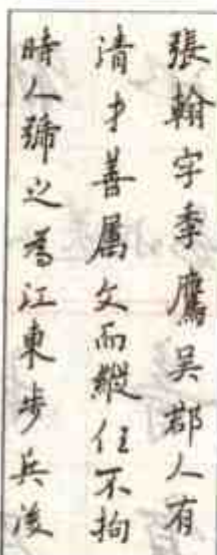 張翰字季鷹吳郡人有
清才善属文而縱任不拘
時人號之為江東步兵後